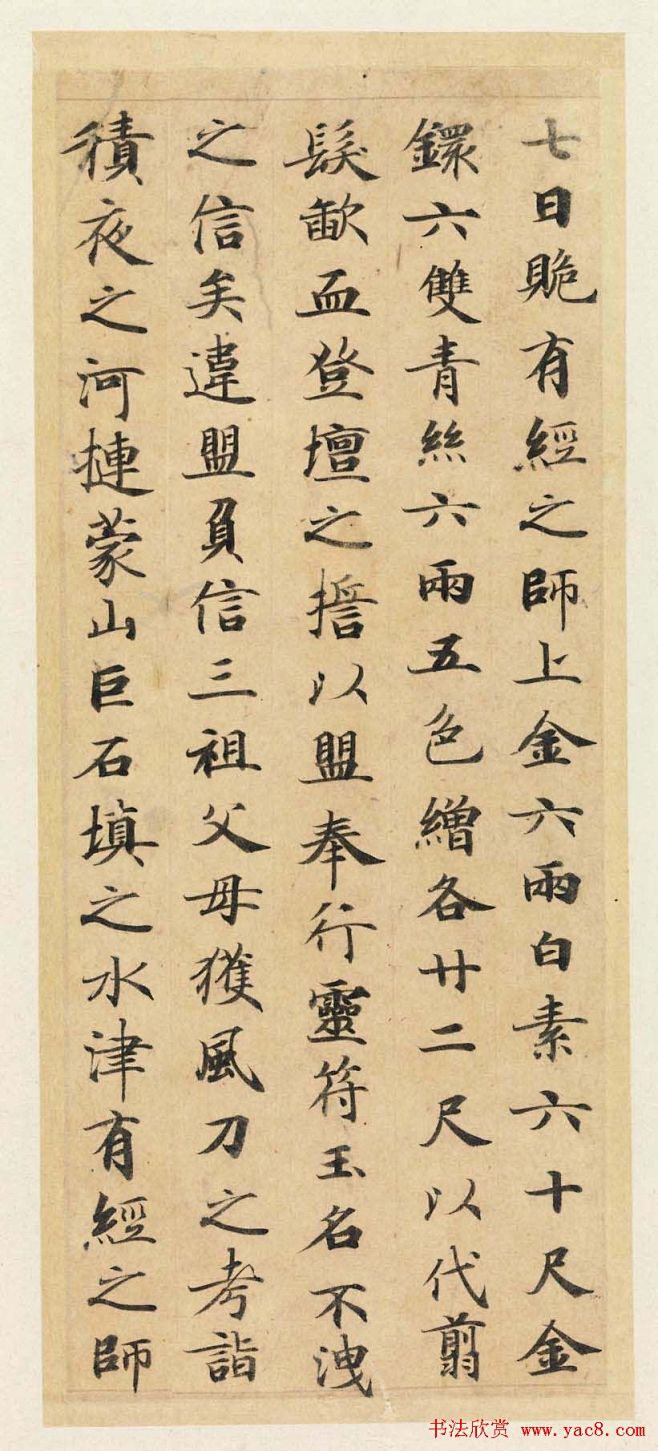 七日賄有經之師上金六兩白素六十尺金
鐶六雙青絲六兩五色繒各廿二尺以代翦
髮歃血登壇之擔以盟奉行靈符玉名不洩
之信矣違盟負信三祖父母獲風刀之考詣
積夜之河揵蒙山巨石填之水津有經之師
书法欣赏 www.yac8.com